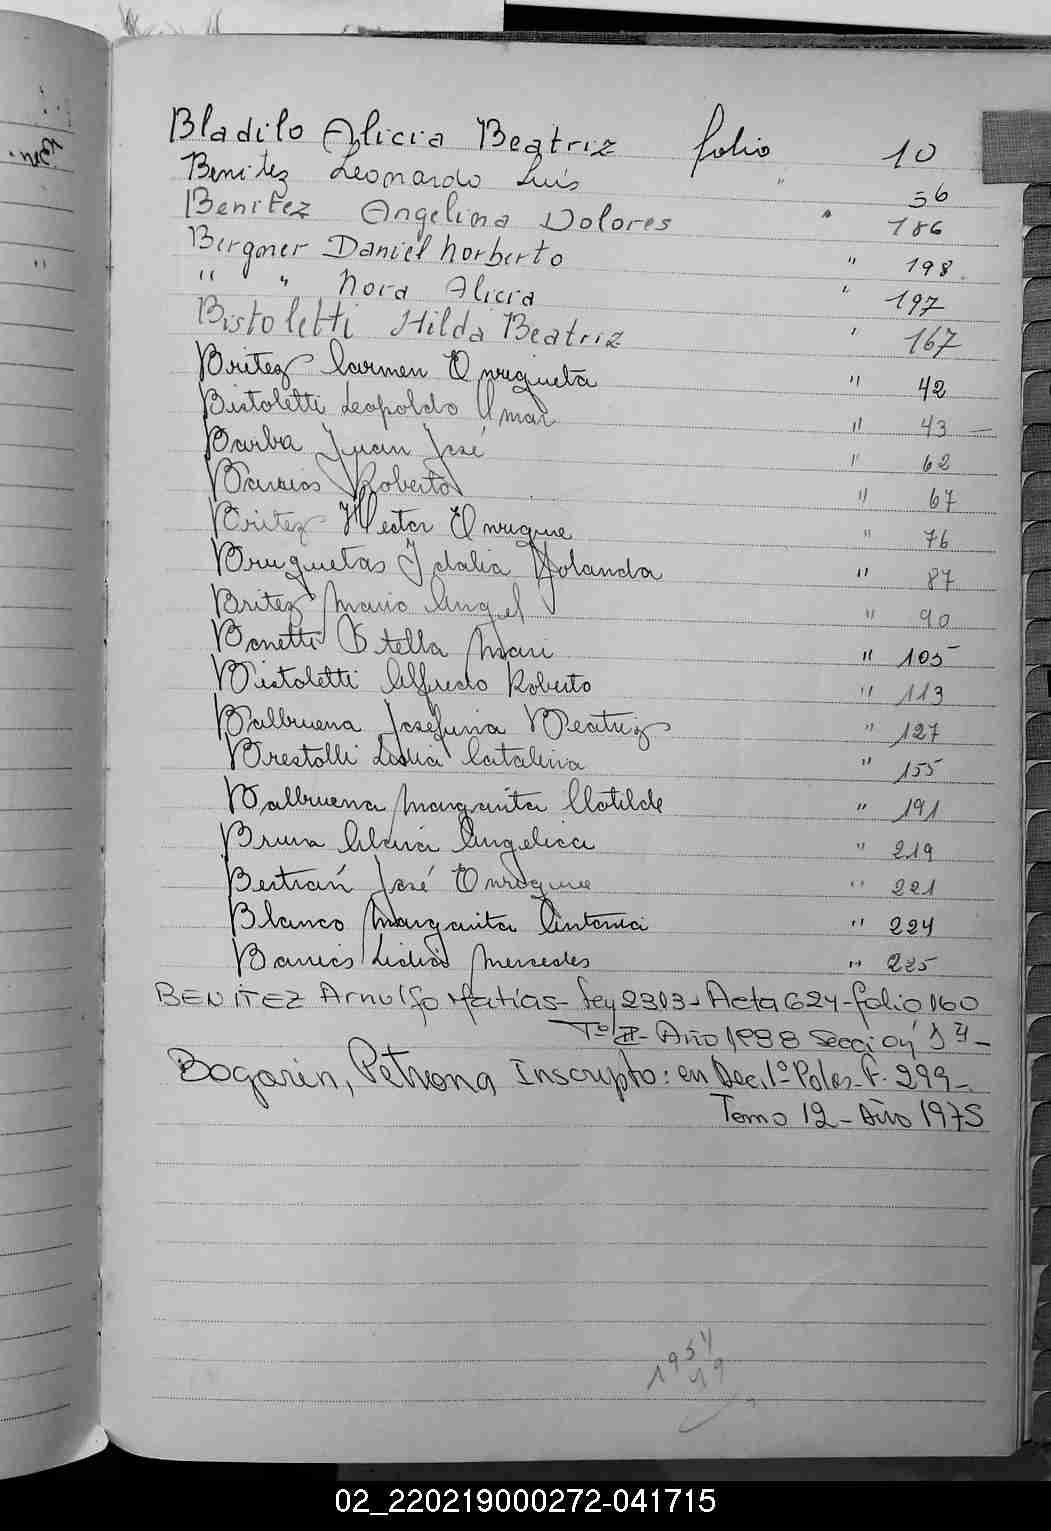 Bladilo Alicia Beatriz folio 10
Benitez Leonardo Luis " 56
Benitez Angelina Dolores " 186
Bergner Daniel Norberto " 198
" " Nora Alicia " 197
Bistoletti Hilda Beatriz " 167
Britez Carmen Enriqueta " 42
Bistoletti Leopoldo Omar " 43
Barba Juan José " 62
Barrios Roberto " 67
Britez Hector Enrique " 76
Bruguetas Idalia Yolanda " 87
Britez Mario Angel " 90
Bonetti Stella Mari " 105
Bistoletti Alfredo Roberto " 113
Balbuena Josefina Beatriz " 127
Brestolli Lidia Catalina " 155
Balbuena Margarita Clotilde " 191
Bruna Maria Angelica " 219
Bertrán José Enrique " 221
Blanco Margarita Antonia " 224
Barrios Lidia Mercedes " 225
BENITEZ Arnulfo Matías - Ley 2313 - Acta 624 - folio 160
Tº II - Año 1988 Sección 1ª -
Bogarin, Petrona Inscripto: en Dec. 1º Poles. F. 299 -
Tomo 12 - Año 1975
1954
19
02_220219000272-041715